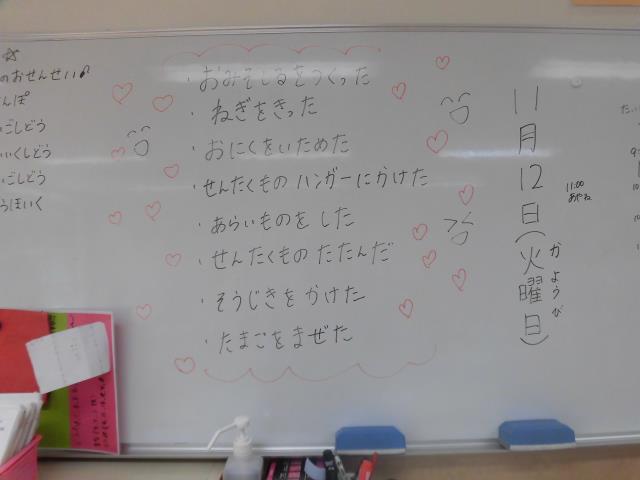 のおせんせい♪
んぽ
ごしどう
いくしどう
ごしどう
うほいく
・おみそしるをつくった
・ねぎをきった
・おにくをいためた
・せんたくもの ハンガーにかけた
・あらいものをした
・せんたくもの たたんだ
・そうじきをかけた
・たまごをまぜた
11月12日(火曜日)
かようび
11:00
あやね